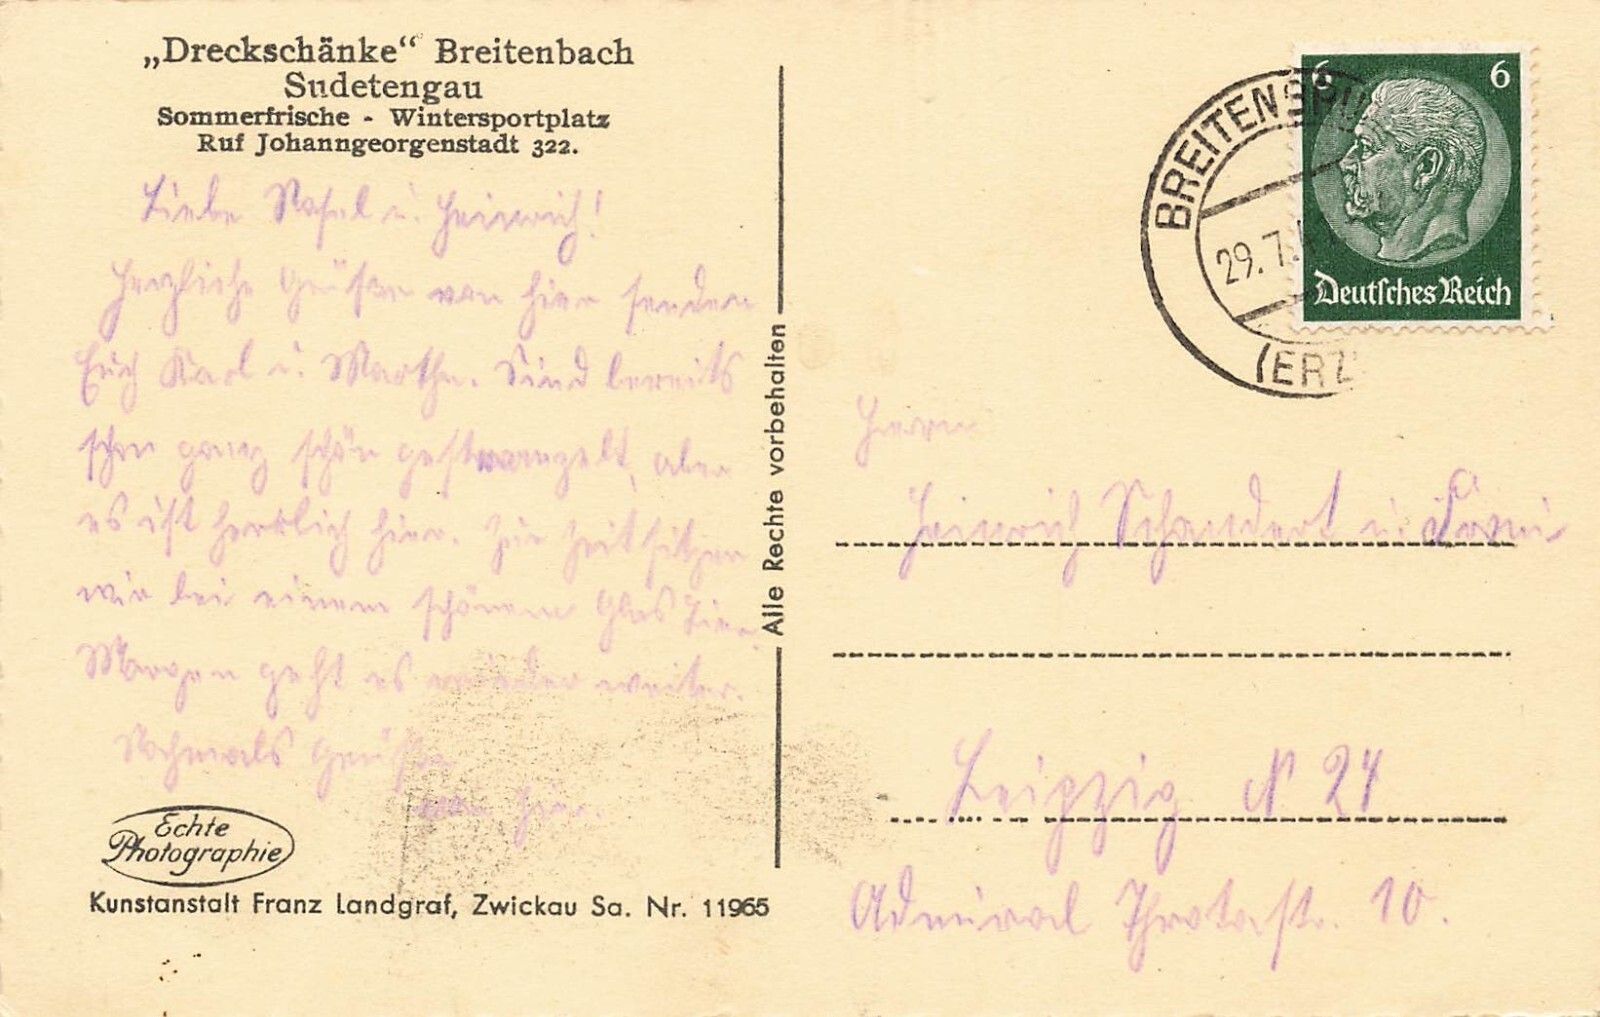 „Dreckschänke“ Breitenbach
Sudetengau
Sommerfrische - Wintersportplatz
Ruf Johanngeorgenstadt 322.
Liebe u. Heinrich!
Herzliche Grüße von hier senden
Euch Karl u. Marthe. Sind bereits
schon ganz schön gestranzelt, aber
es ist herrlich hier. Zur Zeit sitzen
wir bei einem schönen Glas Bier.
Morgen geht es wieder weiter.
Nochmals Grüße
von hier.
Echte
Photographie
Kunstanstalt Franz Landgraf, Zwickau Sa. Nr. 11965
Alle Rechte vorbehalten
BREITENBRU
29.7.4
(ERZ
6 6
Deutsches Reich
Herrn
Heinrich Schandert u.
Leipzig N 24
Admiral Throtastr. 10.